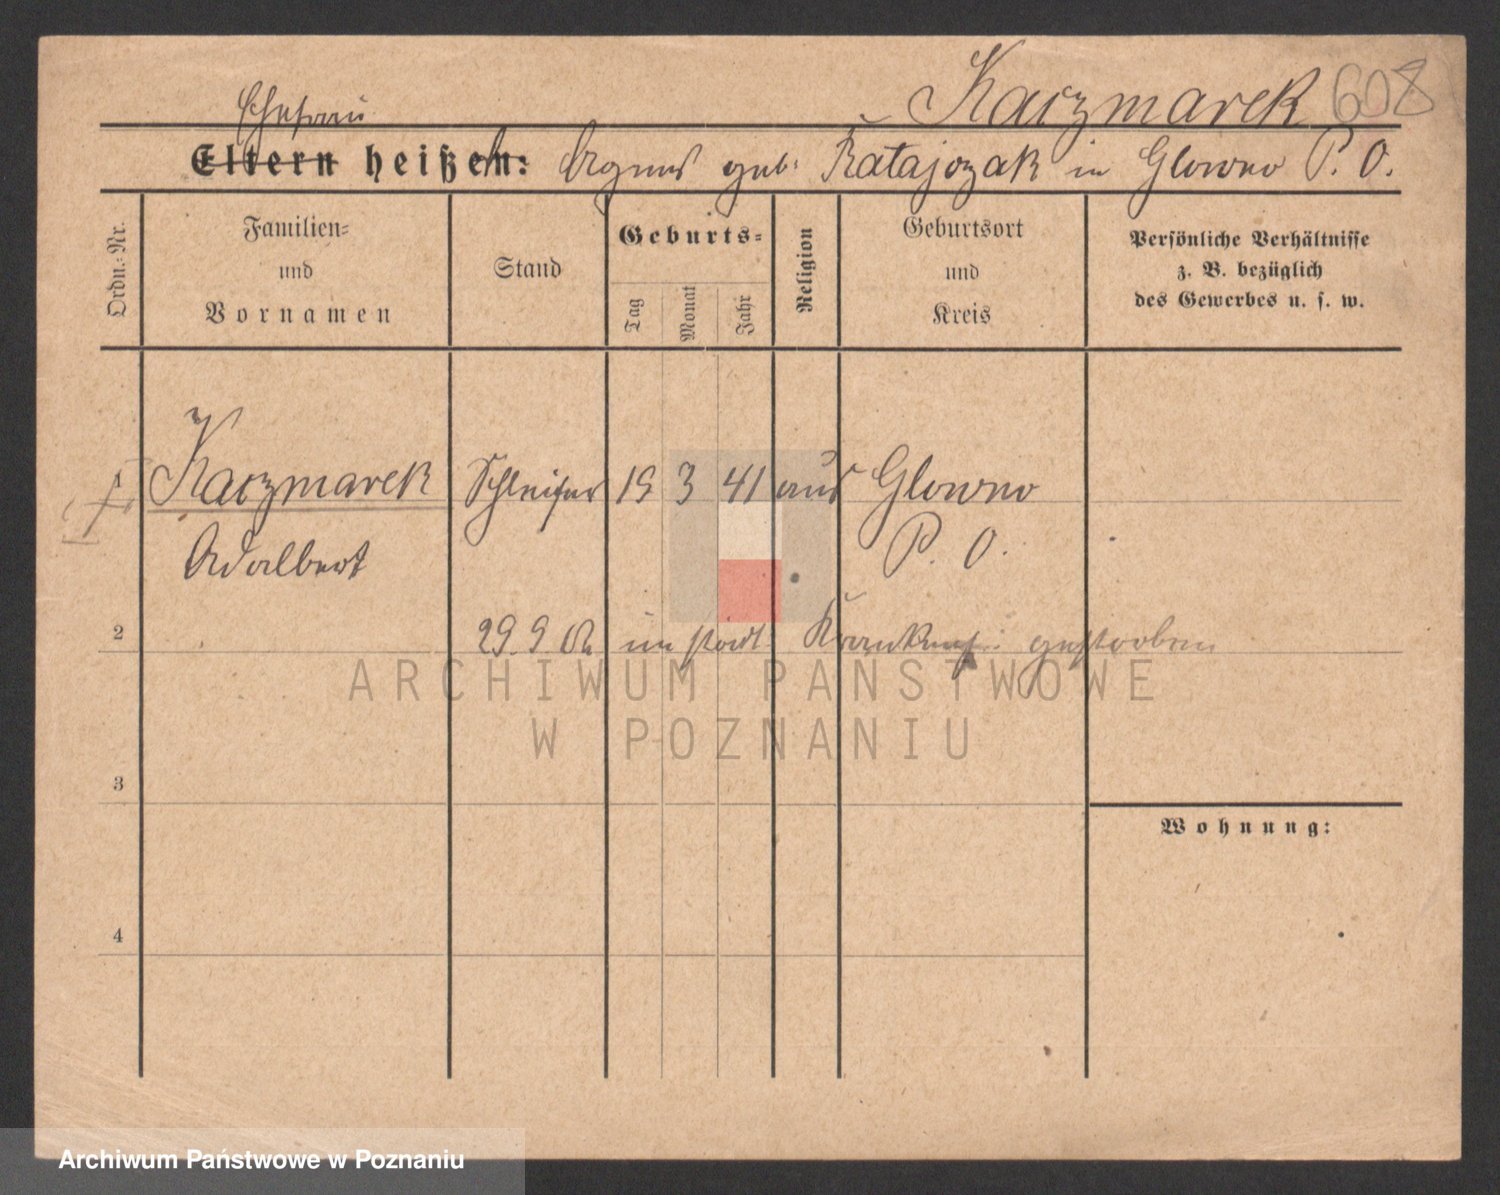 Kaczmarek 608
Ehefrau
Eltern heißen: Agnes geb. Ratajczak in Glowno P. O.
Ordn.-Nr.
Familien-
und
Vornamen
Stand
Geburts-
Tag
Monat
Jahr
Religion
Geburtsort
und
Kreis
Persönliche Verhältnisse
z. B. bezüglich
des Gewerbes u. s. w.
1 Kaczmarek Schleifer 19 3 41 aus Glowno
Adalbert P. O.
2 29. 9 im städt. gestorben
ARCHIWUM PAŃSTWOWE
W POZNANIU
3
Wohnung:
4
Archiwum Państwowe w Poznaniu